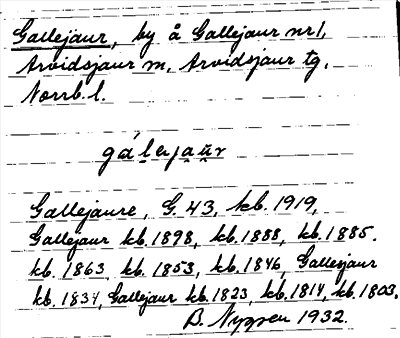 Gallejaur, by å Gallejaur nr 1,
Arvidsjaur sn, Arvidsjaur tg,
Norrb. l.
Gallejaure, G. 43, kb. 1919,
Gallejaur kb. 1898, kb. 1888, kb. 1885.
kb. 1863, kb. 1853, kb. 1846, Gallejaur
kb. 1834, Gallejaur kb. 1823, kb. 1814, kb. 1803.
B. 1932.